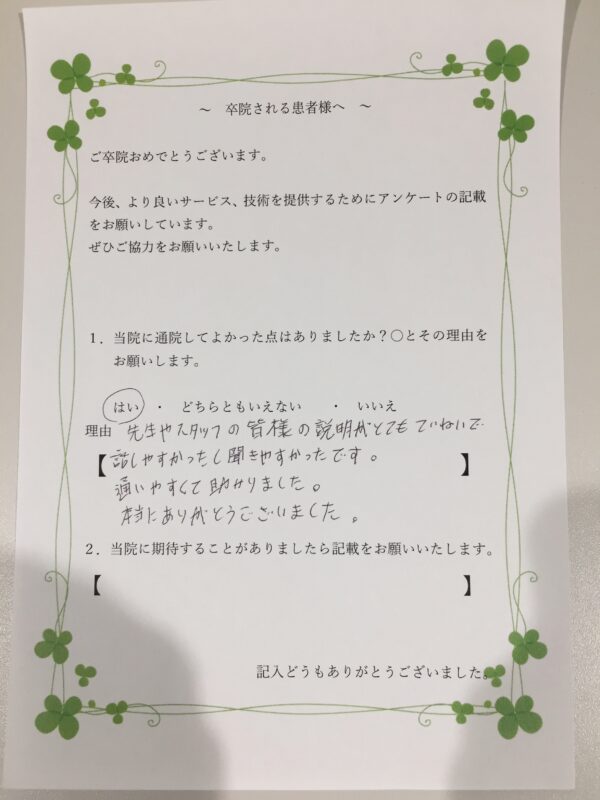 ～ 卒院される患者様へ ～
ご卒院おめでとうございます。
今後、より良いサービス、技術を提供するためにアンケートの記載
をお願いしています。
ぜひご協力をお願いいたします。
１．当院に通院してよかった点はありましたか？〇とその理由を
お願いします。
はい ・ どちらともいえない ・ いいえ
理由 先生やスタッフの皆様の説明がとてもていねいで
【話しやすかったし聞きやすかったです。】
通いやすくて助かりました。
本当にありがとうございました。
２．当院に期待することがありましたら記載をお願いいたします。
【 】
記入どうもありがとうございました。